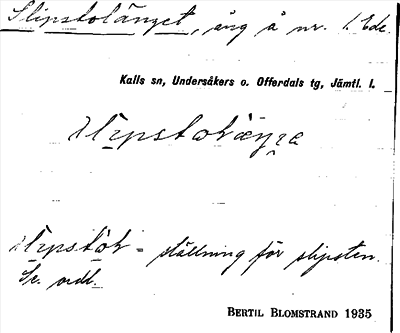 Slipstolänget, äng å nr. 1 Ede.
Kalls sn, Undersåkers o. Offerdals tg, Jämtl. l.
slipstol - ställning för slipsten.
Se ordl.
BERTIL BLOMSTRAND 1935